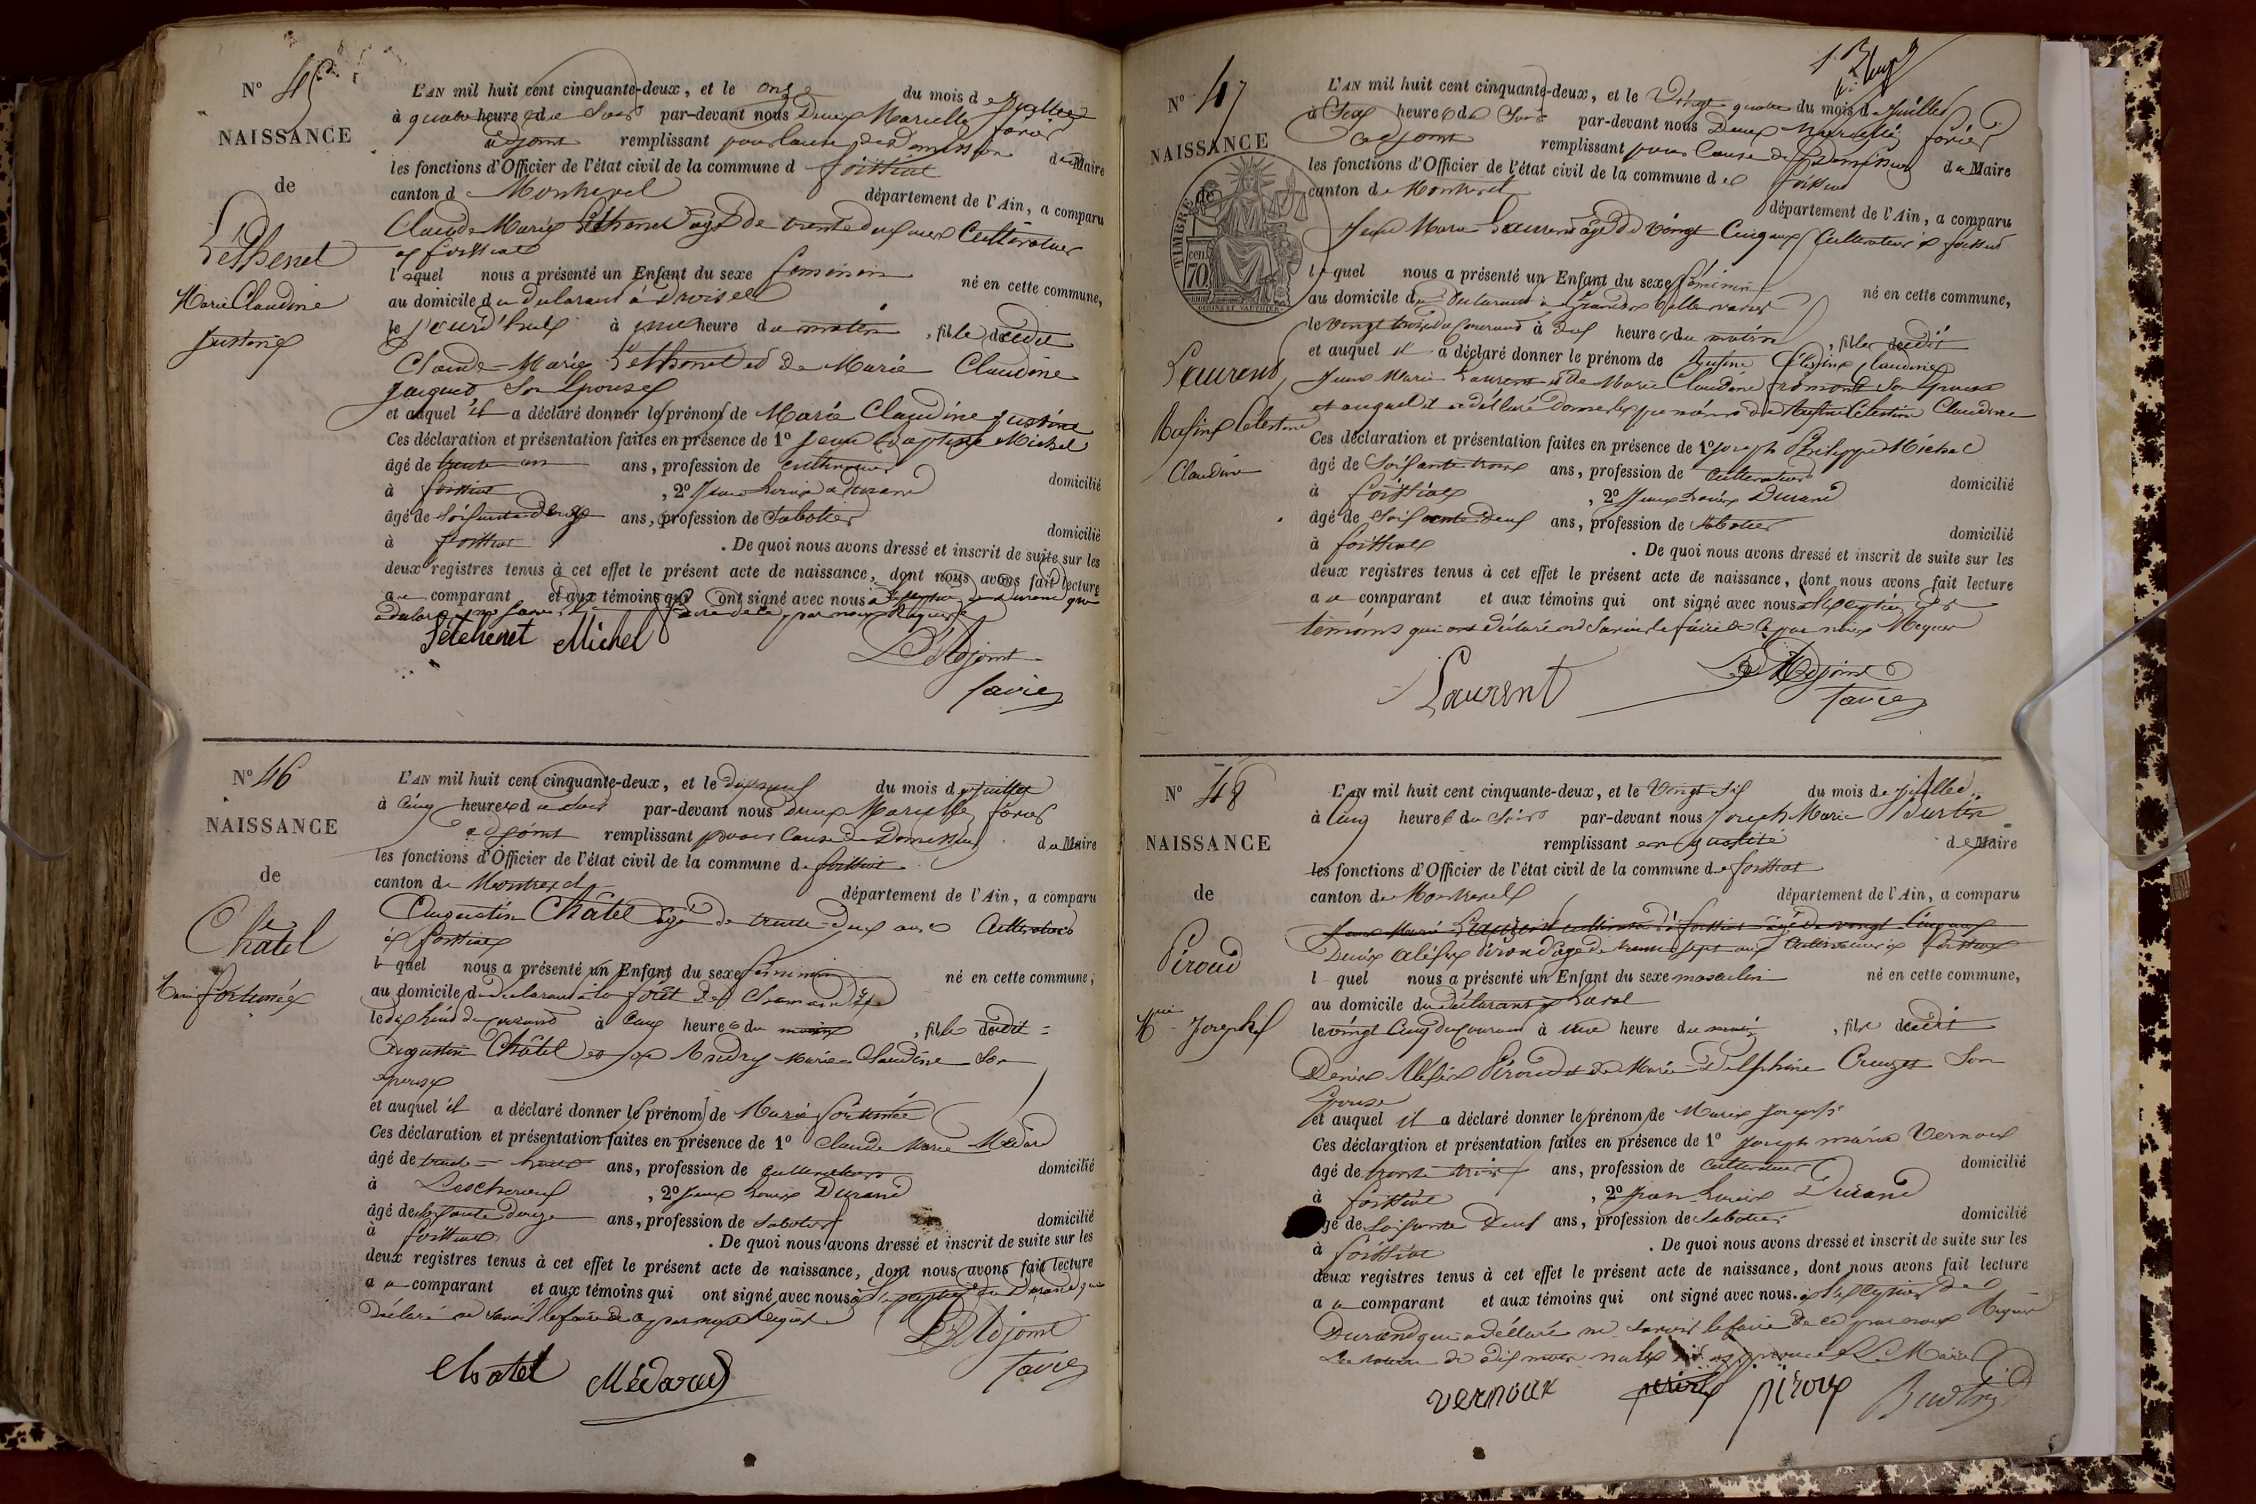 N° 45
NAISSANCE
de
Péthenet
Marie Claudine
Justine
L'AN mil huit cent cinquante-deux, et le onze du mois de Juillet
à quatre heures du Soir par-devant nous Denis Marielle favier
adjoint remplissant pour Cause de Démission du Maire
les fonctions d'Officier de l'état civil de la commune d foissiat
canton de Montrevel département de l'Ain, a comparu
Claude Marie Péthenet agé de trente deux ans Cultivateur
à foissiat
lequel nous a présenté un Enfant du sexe féminin né en cette commune,
au domicile du déclarant à
le jourd'hui à une heure du matin, fille dudit
Claude-Marie Péthenet et de Marie Claudine
Jacquet Son épouse
et auquel il a déclaré donner les prénoms de Marie Claudine Justine
Ces déclaration et présentation faites en présence de 1° Jean Baptiste Michel
âgé de trente un ans, profession de cultivateur domicilié
à foissiat, 2° Jean Louis Durand
âgé de Soixante Deux ans, profession de Sabotier domicilié
à foissiat. De quoi nous avons dressé et inscrit de suite sur les
deux registres tenus à cet effet le présent acte de naissance, dont nous avons fait lecture
au comparant et aux témoins qui ont signé avec nous à l'exception de Durand qui
a déclaré ne Savoir le faire de ce par nous Requis
Péthenet Michel L'Adjoint
favier
N° 46
NAISSANCE
de
Châtel
Marie fortunée
L'AN mil huit cent cinquante-deux, et le dix neuf du mois de Juillet
à Cinq heures du Soir par-devant nous Denis Marielle favier
adjoint remplissant pour Cause de Démission du Maire
les fonctions d'Officier de l'état civil de la commune de foissiat
canton de Montrevel département de l'Ain, a comparu
Augustin Châtel agé de trente-deux ans Cultivateur
à foissiat
lequel nous a présenté un Enfant du sexe féminin né en cette commune,
au domicile du déclarant à la forêt des
le dix huit du courant à Cinq heures du matin, fille dudit
Augustin Châtel et de Andrey Marie Claudine Son
épouse
et auquel il a déclaré donner les prénoms de Marie fortunée
Ces déclaration et présentation faites en présence de 1° Claude Marie Médard
âgé de trente-huit ans, profession de cultivateur domicilié
à Lescheroux, 2° Jean Louis Durand
âgé de Soixante deux ans, profession de Sabotier domicilié
à foissiat. De quoi nous avons dressé et inscrit de suite sur les
deux registres tenus à cet effet le présent acte de naissance, dont nous avons fait lecture
au comparant et aux témoins qui ont signé avec nous à l'exception de Durand qui
a déclaré ne savoir le faire de ce par nous Requis
L'Adjoint
Chatel Médard favier
N° 47
NAISSANCE
de
TIMBRE
70 cen.
Laurent
Célestine
Claudine
L'AN mil huit cent cinquante-deux, et le Vingt quatre du mois de Juillet
à Six heures du Soir par-devant nous Denis Marielle favier
adjoint remplissant pour Cause de Démission du Maire
les fonctions d'Officier de l'état civil de la commune de foissiat
canton de Montrevel département de l'Ain, a comparu
Jean Marie Laurent âgé de Vingt Cinq ans Cultivateur à foissiat
lequel nous a présenté un Enfant du sexe féminin né en cette commune,
au domicile du déclarant à Grandes
le vingt trois du courant à deux heures du matin, fille dudit
et auquel il a déclaré donner le prénom de Célestine Claudine
Jean Marie Laurent et de Marie Claudine fromont Son épouse
et auquel il a déclaré donner les prénoms de Célestine Claudine
Ces déclaration et présentation faites en présence de 1° Joseph Philippe Michel
âgé de Soixante trois ans, profession de Cultivateur domicilié
à foissiat, 2° Jean Louis Durand
âgé de Soixante Deux ans, profession de Sabotier domicilié
à foissiat. De quoi nous avons dressé et inscrit de suite sur les
deux registres tenus à cet effet le présent acte de naissance, dont nous avons fait lecture
au comparant et aux témoins qui ont signé avec nous à l'exception des
témoins qui ont déclaré ne Savoir le faire de ce par nous Requis
L'Adjoint
Laurent favier
N° 48
NAISSANCE
de
Piroud
Marie Joseph
L'AN mil huit cent cinquante-deux, et le Vingt Six du mois de juillet
à Cinq heures du Soir par-devant nous Joseph Marie
remplissant en qualité de Maire
les fonctions d'Officier de l'état civil de la commune de foissiat
canton de Montrevel département de l'Ain, a comparu
Jean Marie Laurent cultivateur à foissiat âgé de vingt Cinq ans
Denis Aléxis Piroud agé de trente sept ans Cultivateur à foissiat
l quel nous a présenté un Enfant du sexe masculin né en cette commune,
au domicile du déclarant à
le vingt Cinq du courant à une heure du matin, fils dudit
Denis Alexis Piroud et de Marie Delphine Cruzet Son
épouse
et auquel il a déclaré donner le prénom de Marie Joseph
Ces déclaration et présentation faites en présence de 1° Joseph marie Vernoux
âgé de trente trois ans, profession de Cultivateur domicilié
à foissiat, 2° Jean Louis Durand
âgé de Soixante Deux ans, profession de Sabotier domicilié
à foissiat. De quoi nous avons dressé et inscrit de suite sur les
deux registres tenus à cet effet le présent acte de naissance, dont nous avons fait lecture
au comparant et aux témoins qui ont signé avec nous à l'exception de
Durand qui a déclaré ne savoir le faire de ce par nous Requis
de dix mots nuls Le Maire
vernoux piroux